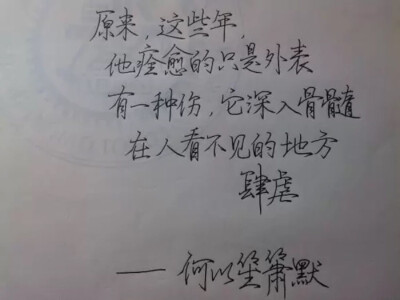 原来，这些年，
他痊愈的只是外表
有一种伤，它深入骨髓
在人看不见的地方
肆虐
—— 何以笙箫默